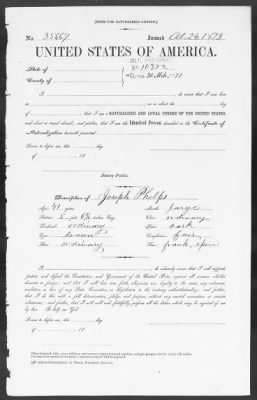 [FORM FOR NATURALIZED CITIZEN.]
No. 35667 Issued Oct. 24, 1873
UNITED STATES OF AMERICA.
State of
County of
OLD PASSPORT
No 1037
Dated 20 Mch. 71
I, do swear that I was born
in on or about the day of
, that I am a NATURALIZED AND LOYAL CITIZEN OF THE UNITED STATES
and about to travel abroad; and further, that I am the Identical Person described in the Certificate of
Naturalization herewith presented.
Sworn to before me, this day
of 18
Notary Public.
Description of Joseph Phelps
Age: 41 years Mouth: large
Stature: 5 feet inches, Eng. Chin: ordinary
Forehead: ordinary Hair: dark
Eyes: brown Complexion: fair
Nose: ordinary Face: frank, open
I, do solemnly swear that I will support,
protect, and defend the Constitution and Government of the United States against all enemies, whether
domestic or foreign; and that I will bear true faith, allegiance, and loyalty to the same, any ordinance,
resolution, or law of any State, Convention, or Legislature to the contrary notwithstanding; and further,
that I do this with a full determination, pledge, and purpose, without any mental reservation or evasion
whatsoever; and further, that I will well and faithfully perform all the duties which may be required of me
by law. So help me God.
Sworn to before me, this day
of 18